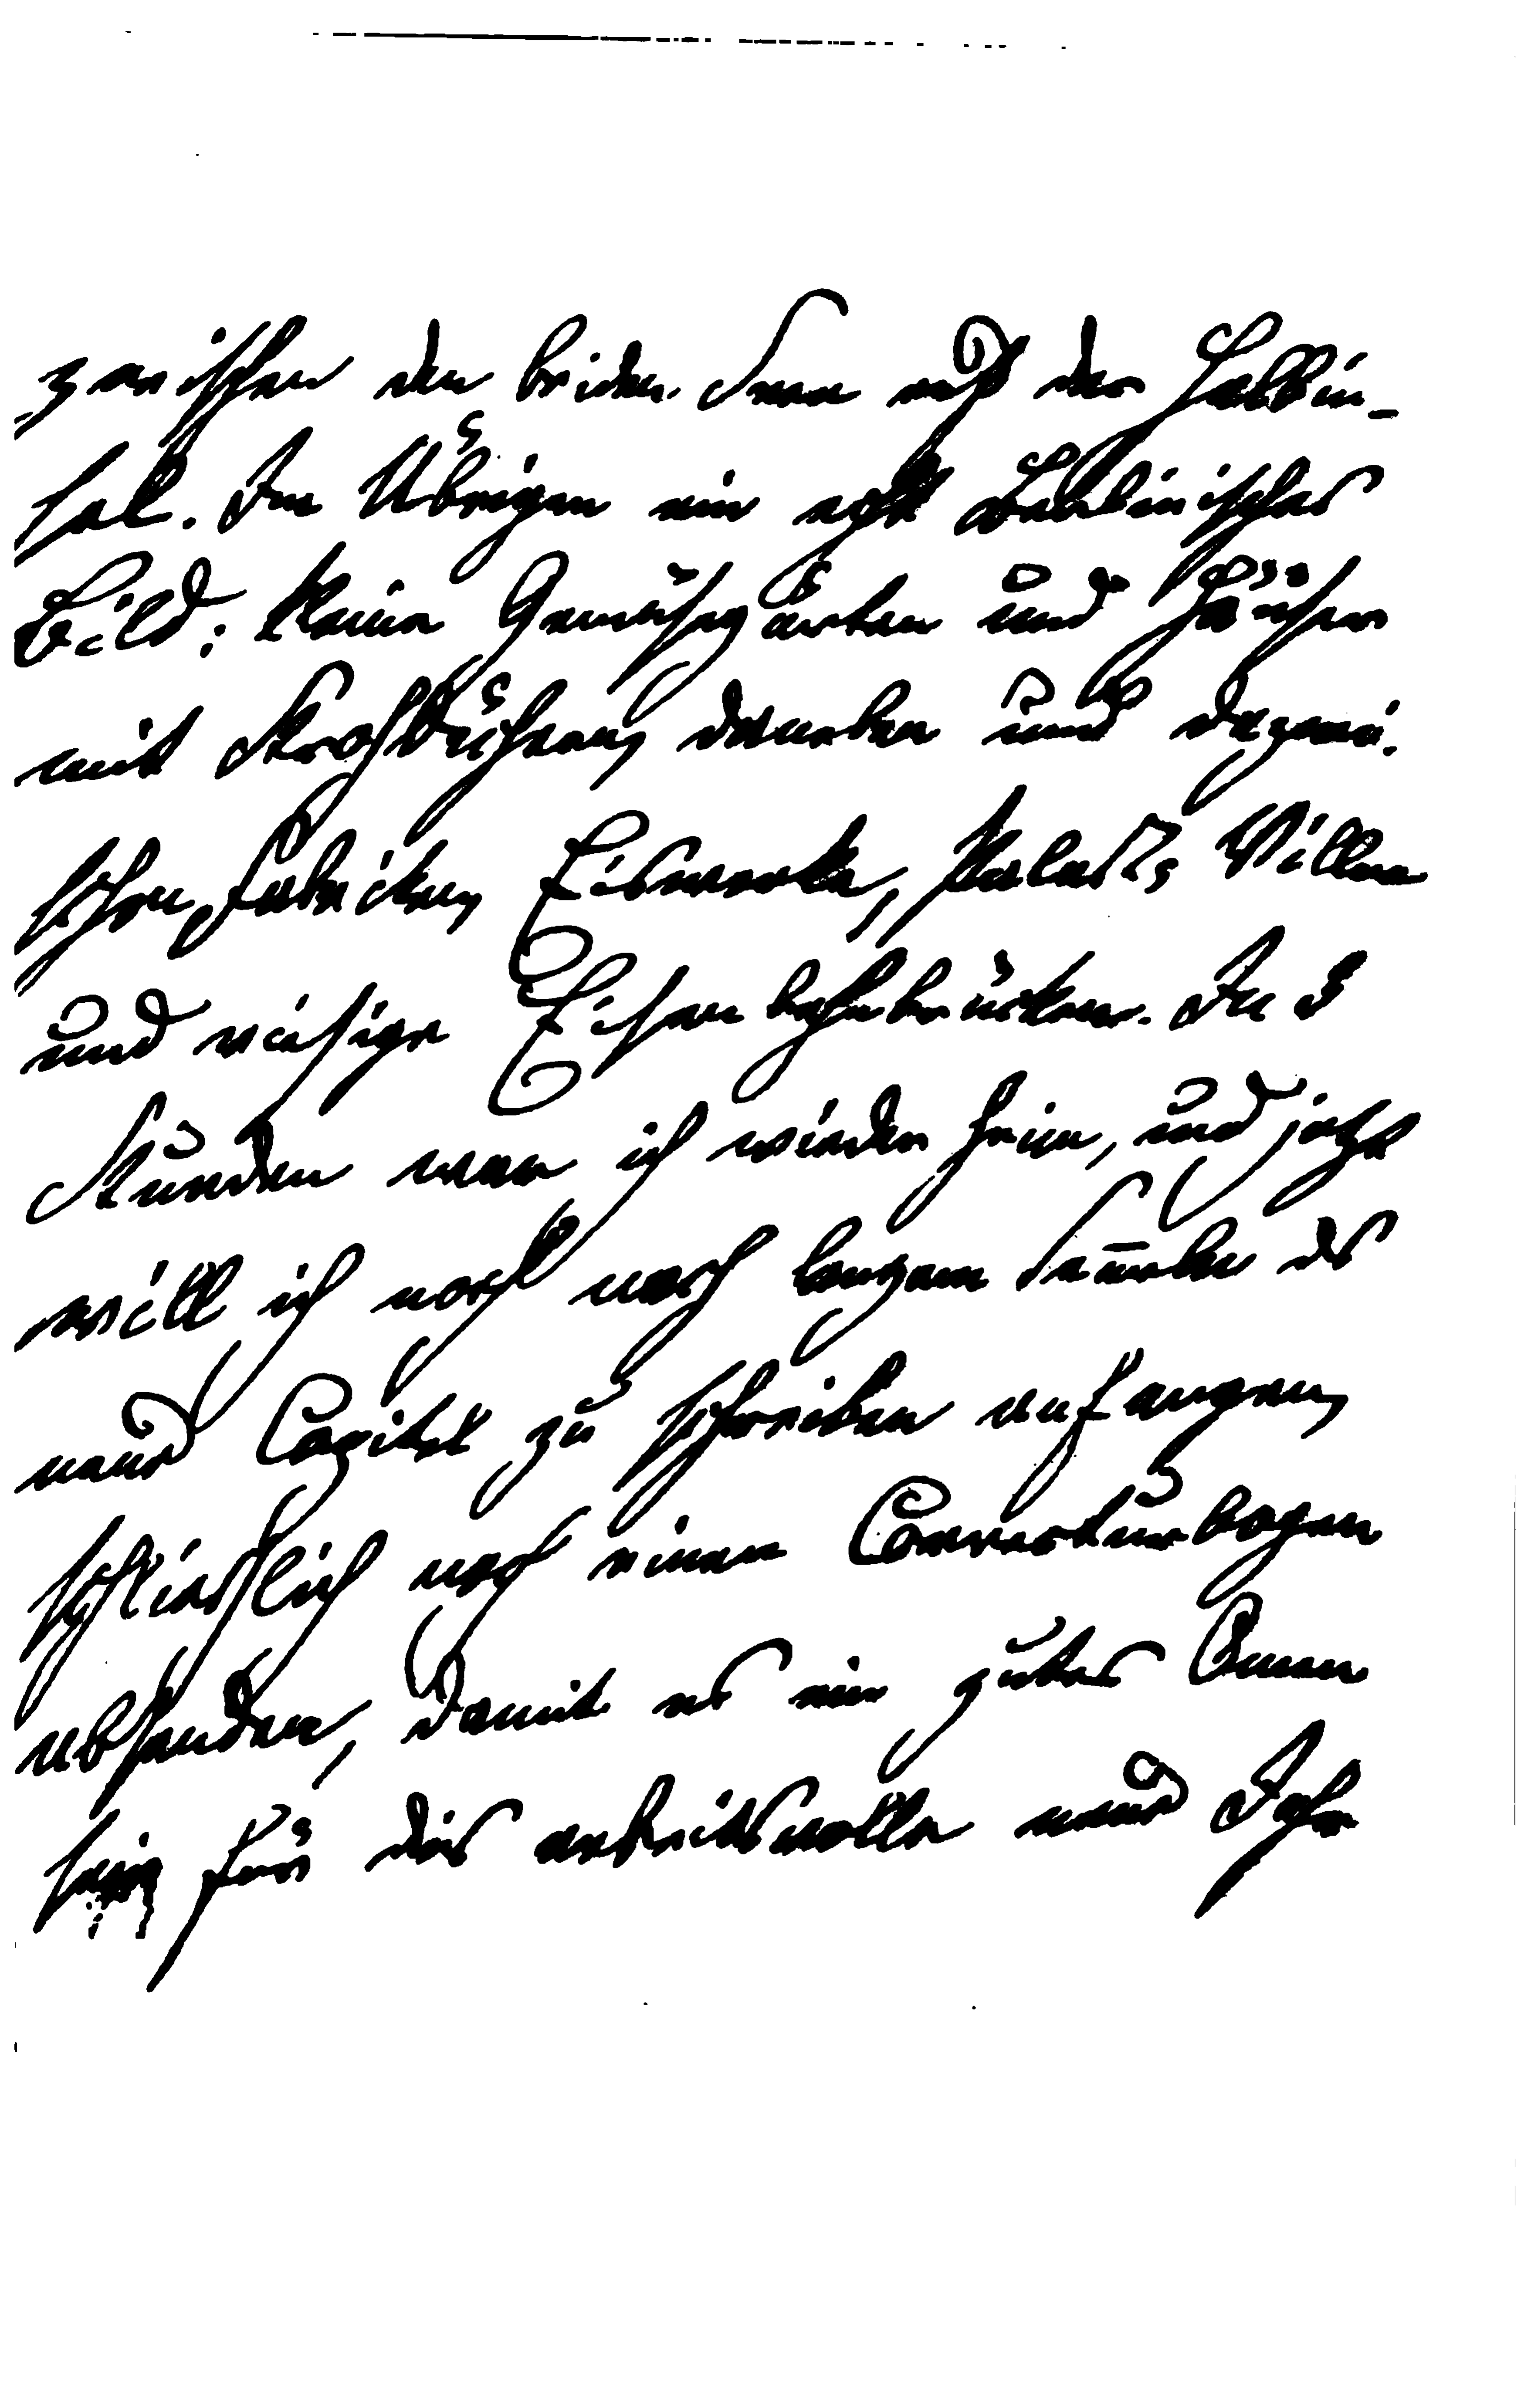 zwischen den beiden Seen auf der Halbin-
sel. Im Übrigen ein echt Berlinisches
Bild: kleine Gemüsegärten und Häuser
mit Strohdächern daneben und dazwi-
schen Fabriken, Eis Villen
und riesige Eisenbahnbrücken. In 3
Stunden war ich wieder heim, und jetzt
will ich noch nach langem das
neue Capitel zu schreiben anfangen,
schließlich noch einen Correcturbogen
absenden, damit es ein guter Anfang
für das arbeitsvolle neue Jahr